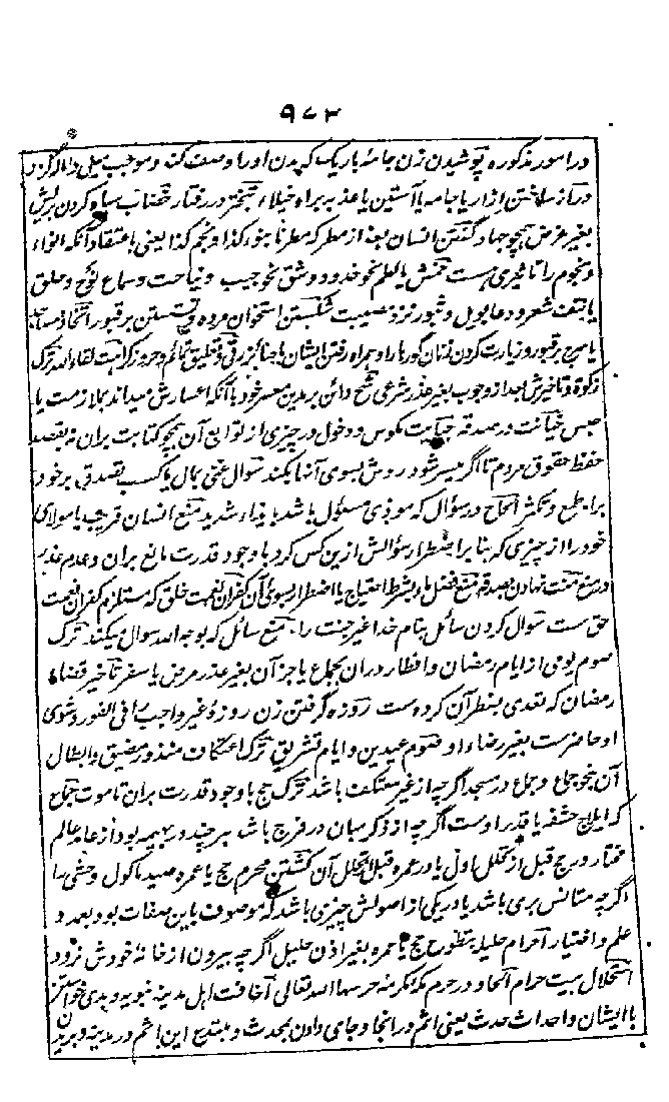 ۹۷۳
در امور مذکوره پوشیدن زن جامهٔ باریک که بدن او را وصف کند و موجب میل و امالہ گردد
دراز ساختن ازار یا جامه یا آستین یا عذبه براه خیلاء تبختر در رفتار خضاب سیاه کردن بریش
بغیر غرض همچو جهاد گفتن انسان بعد از مطر که مطرنا بنوء کذا و نجم کذا یعنی باعتقاد آنکه انواء
و نجوم را تاثیری هست خمش یا لطم نحو خدود و شق نحو جیب و نیاحت و سماع نوح و حلق
یا نتف شعر و دعا بویل و ثبور نزد مصیبت شکستن استخوان مرده و نشستن بر قبور اتخاذ مساجد
یا سرج بر قبور و زیارت کردن زنان گورها را و همراه رفتن ایشان با جنائز رقی و تعلیق تمائم و حروز کراهت لقاء الله ترک
زکوة و تاخیرش بعد از وجوب بغیر عذر شرعی شح دائن بر مدین معسر خود با آنکه اعسارش میداند بملازمت یا
حبس خیانت در صدقه جبایت مکوس و دخول در چیزی از توابع آن همچو کتابت بران نه بقصد
حفظ حقوق مردم تا اگر میسر شود روش بسوی آنها بکند سوال غنی بمال یا کسب بصدقتی بر خود
براه طمع و تکثر الحاح در سؤال که موذی مسئول باشد بایذاء شدید منع انسان قریب یا مولای
خود را از چیزی که بنا بر اضطرار سؤالش ازین کس کرد با وجود قدرت مانع بران و عدم عذر
در منع منت نهادن بصدقه منع فضل ماء بشرط احتیاج یا اضطرار بسوی آن کفران نعمت خلق که مستلزم کفران نعمت
حق ست سوال کردن سائل بنام خدا غیر جنت را منع سائل که بوجه الله سوال میکند ترک
صوم یومی از ایام رمضان و افطار دران بجماع یا جز آن بغیر عذر مرض یا سفر تاخیر قضاء
رمضان که تعدی بفطر آن کرده ست روزه گرفتن زن روزهٔ غیر واجب فی الفور و شوی
او حاضرست بغیر رضاء او صوم عیدین و ایام تشریق ترک اعتکاف منذور مضیق و ابطال
آن بنحو جماع و جماع در مسجد اگرچه از غیر معتکف باشد ترک حج با وجود قدرت بران تا موت جماع
که ایلاج حشفه یا قدر اوست اگرچه از ذکر مبان در فرج باشد هر چند در بهیمه بود از عامد عالم
مختار در حج قبل از تحلل اول یا در عمره قبل از تحلل آن کشتن محرم حج یا عمره صید ماکول وحشی را
اگرچه متانس بری باشد یا در یکی از اصولش چیزی باشد که موصوف باین صفات بود بعمد و
علم و اختیار احرام حلیله بتطوع حج یا عمره بغیر اذن حلیل اگرچه بیرون از خانهٔ خودش نرود
استحلال بیت حرام الحاد در حرم مکه مکرمه حرسها الله تعالی اخافت اهل مدینه نبویه و بدی خواستن
با ایشان و احداث حدث یعنی اثم در آنجا و جای دادن بمحدث و مبتدع این اثم در مدینه و بریدن